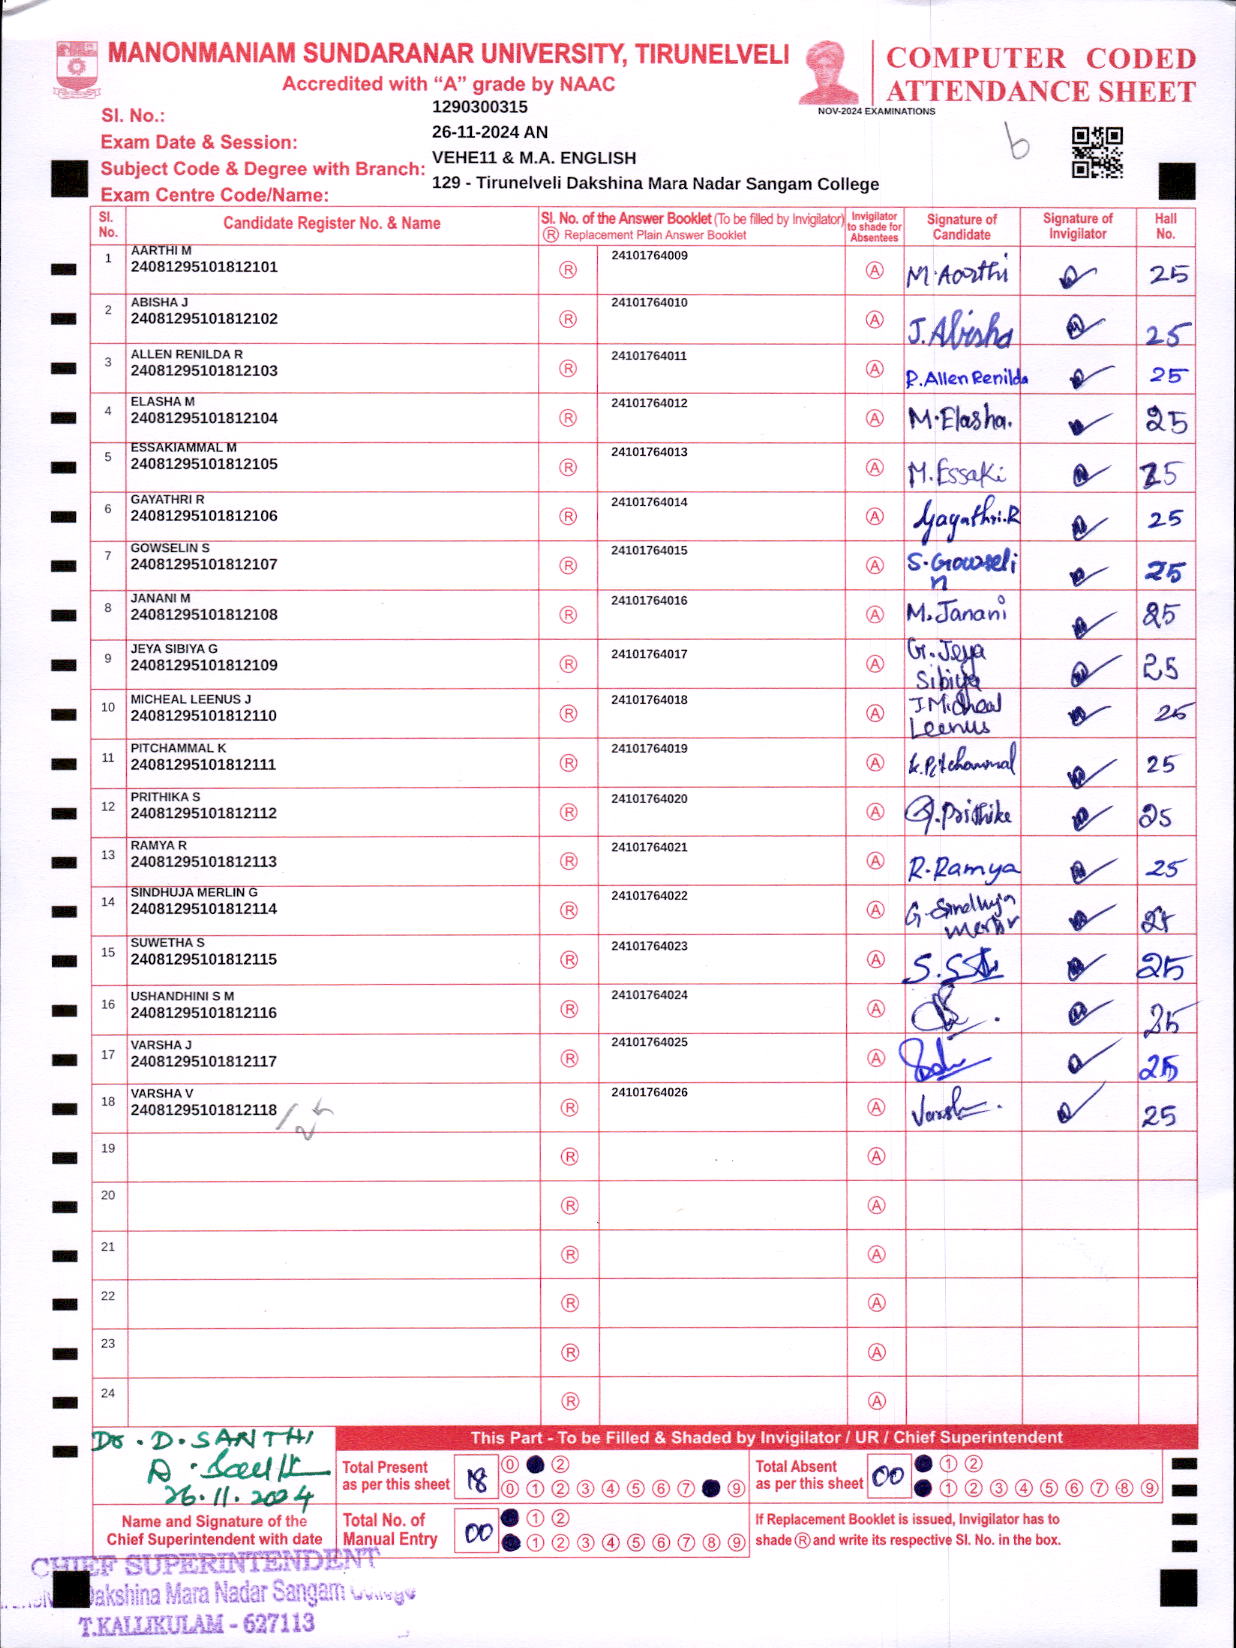 MANONMANIAM SUNDARANAR UNIVERSITY, TIRUNELVELI
Accredited with “A” grade by NAAC
COMPUTER CODED
ATTENDANCE SHEET
NOV-2024 EXAMINATIONS
Sl. No.: 1290300315
Exam Date & Session: 26-11-2024 AN
Subject Code & Degree with Branch: VEHE11 & M.A. ENGLISH
Exam Centre Code/Name: 129 - Tirunelveli Dakshina Mara Nadar Sangam College
6
Sl. No. Candidate Register No. & Name Sl. No. of the Answer Booklet (To be filled by Invigilator) Ⓡ Replacement Plain Answer Booklet Invigilator to shade for Absentees Signature of Candidate Signature of Invigilator Hall No.
1 AARTHI M
24081295101812101 Ⓡ 24101764009 Ⓐ M.Aarthi 25
2 ABISHA J
24081295101812102 Ⓡ 24101764010 Ⓐ J.Abisha 25
3 ALLEN RENILDA R
24081295101812103 Ⓡ 24101764011 Ⓐ R.Allen Renilda 25
4 ELASHA M
24081295101812104 Ⓡ 24101764012 Ⓐ M.Elasha. 25
5 ESSAKIAMMAL M
24081295101812105 Ⓡ 24101764013 Ⓐ M.Essaki 25
6 GAYATHRI R
24081295101812106 Ⓡ 24101764014 Ⓐ Gayathri.R 25
7 GOWSELIN S
24081295101812107 Ⓡ 24101764015 Ⓐ S.Gowselin 25
8 JANANI M
24081295101812108 Ⓡ 24101764016 Ⓐ M.Janani 25
9 JEYA SIBIYA G
24081295101812109 Ⓡ 24101764017 Ⓐ G.Jeya Sibiya 25
10 MICHEAL LEENUS J
24081295101812110 Ⓡ 24101764018 Ⓐ J Micheal Leenus 25
11 PITCHAMMAL K
24081295101812111 Ⓡ 24101764019 Ⓐ K.Pitchammal 25
12 PRITHIKA S
24081295101812112 Ⓡ 24101764020 Ⓐ 25
13 RAMYA R
24081295101812113 Ⓡ 24101764021 Ⓐ R.Ramya 25
14 SINDHUJA MERLIN G
24081295101812114 Ⓡ 24101764022 Ⓐ G.Sindhuja
15 SUWETHA S
24081295101812115 Ⓡ 24101764023 Ⓐ 25
16 USHANDHINI S M
24081295101812116 Ⓡ 24101764024 Ⓐ 25
17 VARSHA J
24081295101812117 Ⓡ 24101764025 Ⓐ 25
18 VARSHA V
24081295101812118 Ⓡ 24101764026 Ⓐ 25
19 Ⓡ Ⓐ
20 Ⓡ Ⓐ
21 Ⓡ Ⓐ
22 Ⓡ Ⓐ
23 Ⓡ Ⓐ
24 Ⓡ Ⓐ
Dr. D. SANTHI
26.11.2024
Name and Signature of the
Chief Superintendent with date
This Part - To be Filled & Shaded by Invigilator / UR / Chief Superintendent
Total Present as per this sheet 18
0 2
0 1 2 3 4 5 6 7 9
Total Absent as per this sheet 00
1 2
1 2 3 4 5 6 7 8 9
Total No. of Manual Entry 00
1 2
1 2 3 4 5 6 7 8 9
If Replacement Booklet is issued, Invigilator has to
shade Ⓡ and write its respective Sl. No. in the box.
CHIEF SUPERINTENDENT
Dakshina Mara Nadar Sangam College
T.KALLIKULAM - 627113